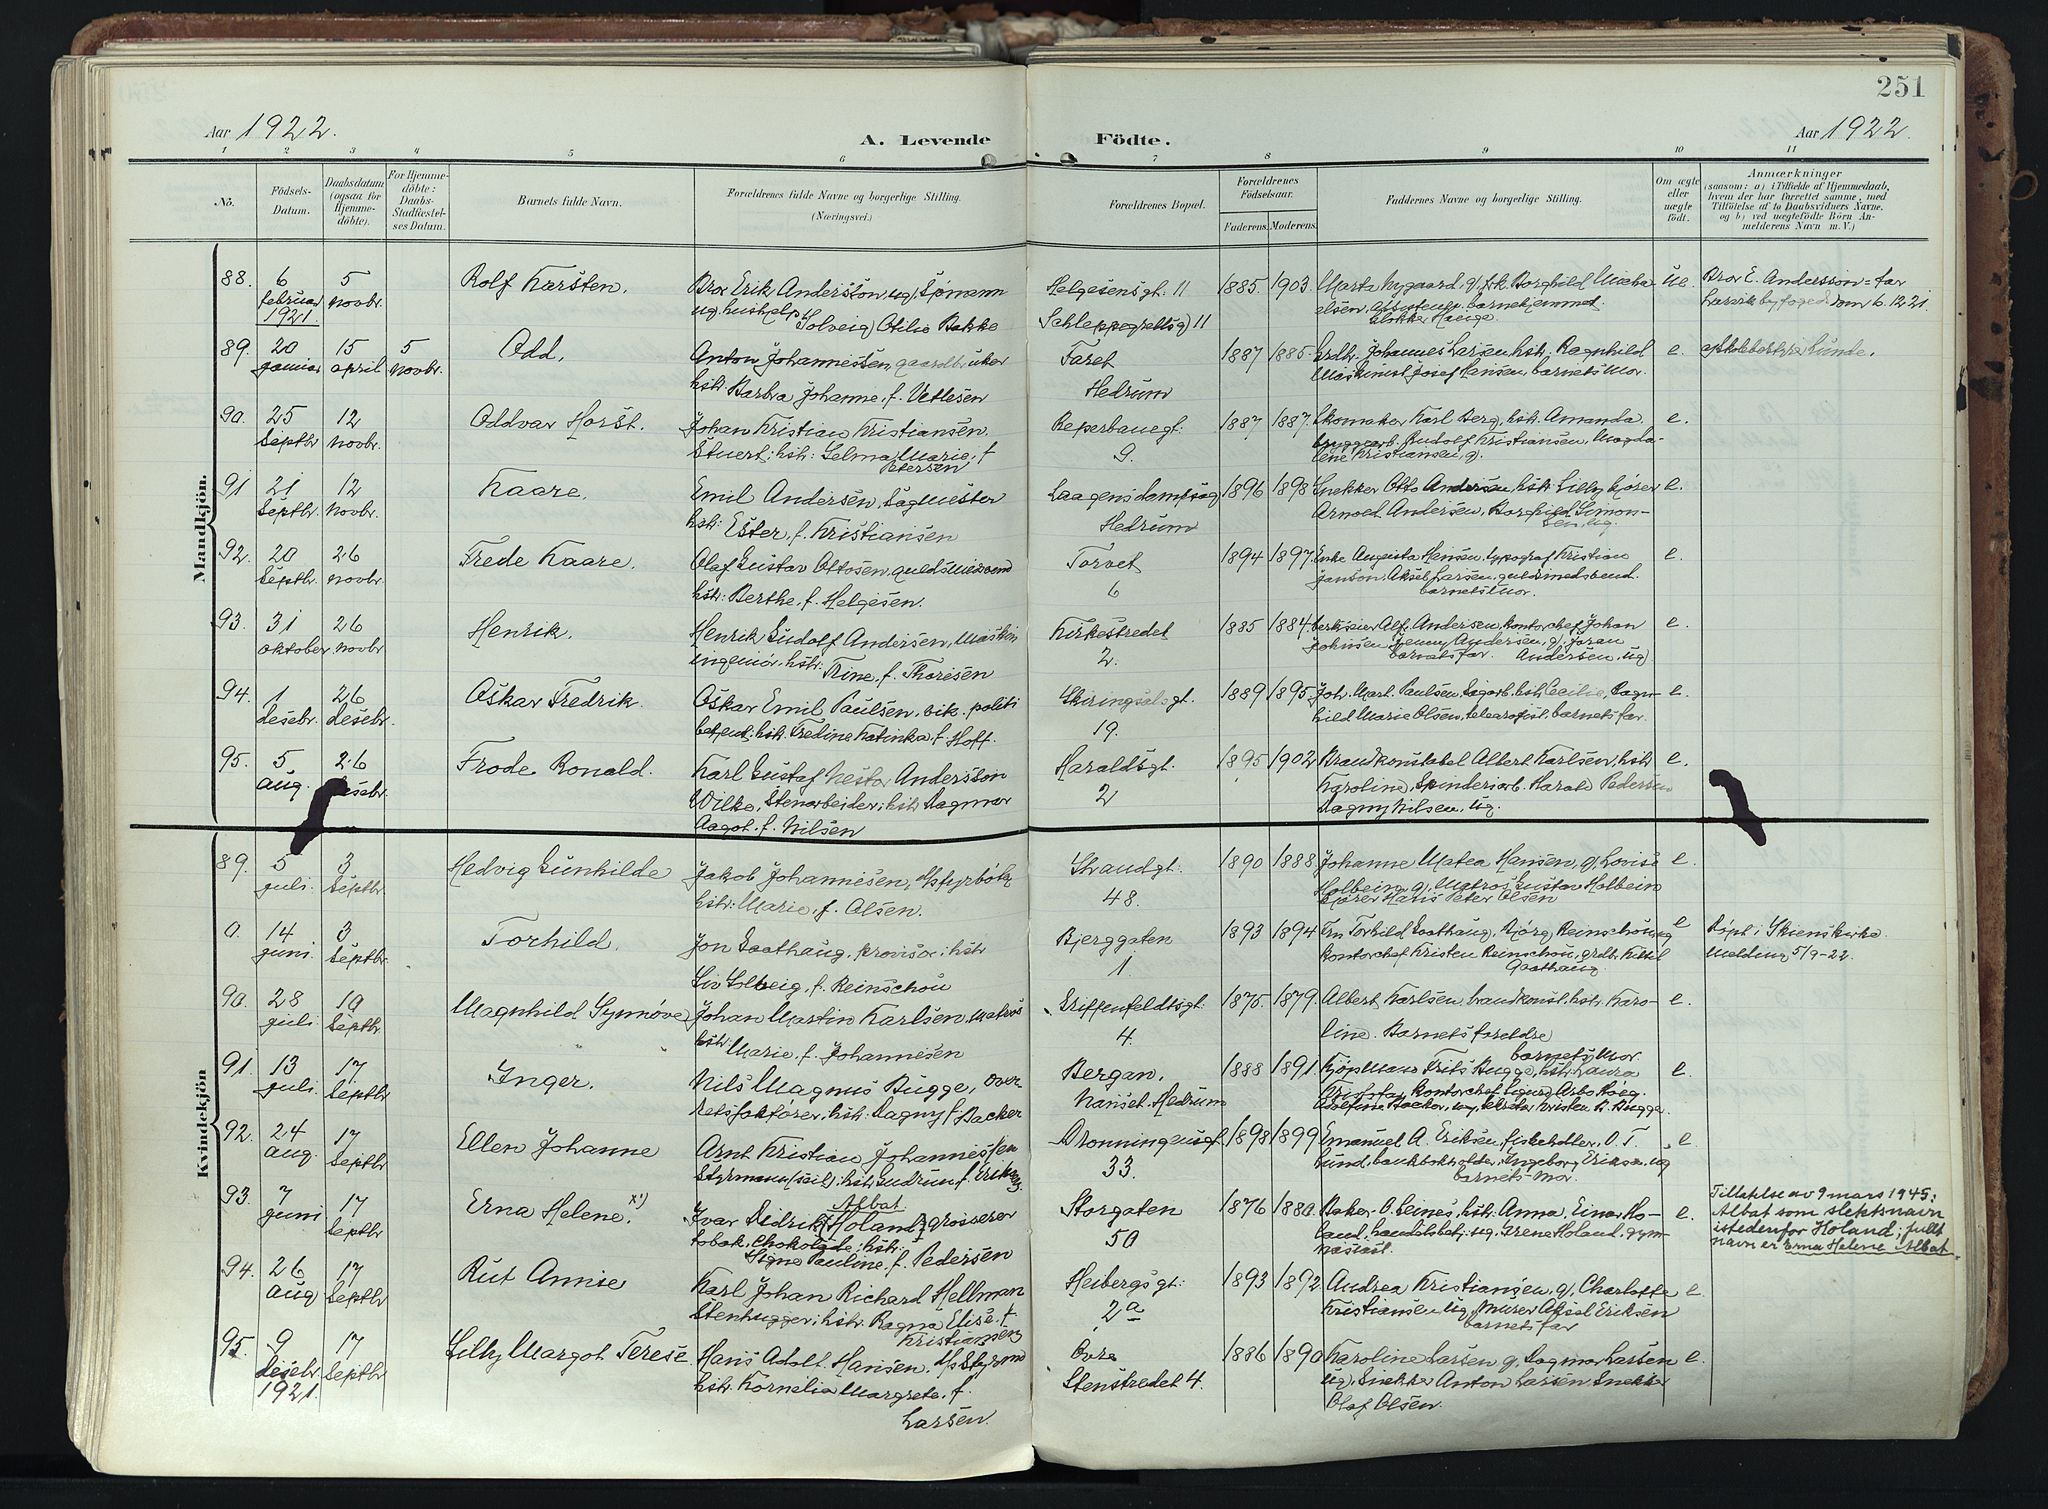 251
Aar 1922.
A. Levende Födte.
Aar 1922.
1 2 3 4 5 6 7 8 9 10 11
No.
Födsels-Datum.
Daabsdatum (ogsaa for Hjemme-döbte).
For Hjemme-döbte: Daabs-Stadfæstel-ses Datum.
Barnets fulde Navn.
Forældrenes fulde Navne og borgerlige Stilling. (Næringsvei.)
Forældrenes Bopæl.
Forældrenes Födselsaar.
Faderens. Moderens.
Faddernes Navne og borgerlige Stilling.
Om ægte eller uægte födt.
Anmærkninger
(saasom: a) i Tilfælde af Hjemmedaab, hvem der har forrettet samme, med Tilföielse af to Daabsvidners Navne, og b) ved uægtefödte Börn An-melderens Navn m. V.)
Mandkjön.
88. 6 februar 1921 5 novbr. Rolf Karsten. Bror Erik Andersson, ug, Sjømann
ug. hushjelp Solveig Otilie Bakke
Helgesensgt. 11
Schleppegrellsg 11
1885 1903 Marta Nygaard g, frk. Borghild
barnehjemmet
Klokker Hauge. ue. Bror E. Andersson = far
Larvik byfoged 6.12.21.
89. 20 januar 15 april 5 novbr. Odd. Anton Johannessen, gaardbruker
hstr. Barbra Johanne, f. Vetlesen
Faret
Hedrum
1887 1885 Johannes Larsen, hstr. Ragnhild
Maskinist Josef Hansen, barnets mor. e.
90. 25 septbr 12 novbr. Oddvar Horst. Johan Kristian Kristiansen.
Stuert, hstr: Selma Marie, f
Petersen
Reperbanegt.
9.
1887 1887. Skomaker Karl Berg, hstr. Amanda
bryggearb. Rudolf Kristiansen, Magda-
lene Kristiansen, g. e.
91 21 septbr. 12 novbr. Kaare. Emil Andersen, sagmester
hstr: Ester, f. Kristiansen
Laagens dampsag
Hedrum
1896 1898 Snekker Otto Andersen, hstr Lilly, kjører
Arnolt Andersen, Borghild Simon-
sen, ug. e.
92. 20 septbr. 26 novbr. Frede Kaare. Olaf Gustav Ottosen, guldsmedsvend
hstr: Berthe, f. Helgesen.
Torvet
6
1894 1897 Enke Augusta Hansen, typograf Kristian
Janson, Aksel Larsen, guldsmedsvend.
barnets mor. e.
93. 31 oktober 26 novbr Henrik. Henrik Ludolf Andersen, maskin
ingeniør, hstr: Trine, f. Thoresen
Kirkestredet
2.
1885 1884 Alf. Andersen, kontorchef Johan
Johnsen, Jenny Andersen, g,
barnets far. Andersen, ug e.
94. 1 desebr. 26 desebr. Oskar Fredrik. Oskar Emil Paulsen, vik. politi
betjent, hstr. Fredine Katinka, f. Hoff.
Skiringsalsgt.
19.
1889 1895 Joh. Mart. Paulsen, sagarb. hstr. Cecilie, Ragn-
hild Marie Olsen, telegrafist, barnets far. e.
95. 5 aug. 26 desebr. Frode Ronald. Karl Gustaf Nestor Andersson
Wilke, Stenarbeider, hstr Dagmar
Aagot. f. Nilsen
Haraldsgt.
2
1895 1902 Brandkonstabel Albert Karlsen, hstr
Karoline, Spinderiarb. Harald Pedersen
Dagny Nilsen, ug. e.
Kvindekjön
89. 5 juli. 3 septbr. Hedvig Gunhilde Jakob Johannesen, fyrbøter
hstr: Marie, f. Olsen.
Strandgt.
48.
1890 1888 Johanne Matea Hansen, g, Lovise
Holbein, g, Matros Gustav Holbein
kjører Hans Peter Olsen e.
0. 14 juni. 3 septbr. Torhild. Jon Gaathaug, provisor, hstr
Liv Solveig, f. Reinschou
Bjerggaten
1
1893 1894 Fru Torhild Gaathaug, Bjørg Reinschou, ug
kontorchef Kristen Reinschou, grdbr. Kittil
Gaathaug e Døpt i Skienskirke
Melding 5/9-22.
90. 28 juli 10 septbr Magnhild Synnøve Johan Martin Karlsen, matros
hstr: Marie, f. Johannesen
Griffenfeldtsgt.
4.
1875. 1879. Albert Karlsen, brandkonst. hstr. Karo-
line. Barnets foreldre e.
91. 13 juli. 17 septbr Inger. Nils Magnus Bugge, over-
retssakfører, hstr: Dagny f. Backer
Bergan,
Nanset. Hedrum
1888 1891 barnets mor
Kjøpman Frits Bugge, hstr. Laura
kontorchef Sigurd Arbo Høeg.
Adolfine Backer, ug, Kristen B. Bugge. e.
92. 24 aug. 17 septbr Ellen Johanne Arnt Kristian Johannessen
Styrmann (seil), hstr Gudrun f. Eriksen
Dronningensgt
33.
1898 1899 Emanuel A. Eriksen, fiskehdler, O. T.
Lund, bankbokholder, Ingeborg Eriksen, ug
barnets mor. e
93. 7 juni 17 septbr Erna Helene. x) Ivar Didrik [Holand] Albat grosserer
tobak, chokolade, hstr:
Signe Pauline, f. Pedersen
Storgaten
50
1876 1880. Baker O. Seines, hstr. Anna, Einar Ho-
land, handelsbetj. ug, Irene Holand, gym-
nasiast. e. Tillatelse av 9 mars 1945:
Albat som slektsnavn
istedenfor Holand; fullt
navn er Erna Helene Albat.
94. 26 aug 17 septbr Rut Annie Karl Johan Richard Hellman
Stenhugger, hstr. Ragna Elise f
Kristiansen
Heibergsgt:
2a
1893 1892 Andrea Kristiansen, g, Charlotte
Kristiansen ug, murer Aksel Eriksen
barnets far e.
95. 9 desebr. 1921 17 septbr Lilly Margot Terese Hans Adolf Hansen,
hstr. Kornelia Margrete, f.
Larsen.
Øvre
Stenstredet 4.
1886 1890 Karoline Larsen g, Dagmar Larsen
ug, Snekker Anton Larsen Snekker
Olaf Olsen. e.